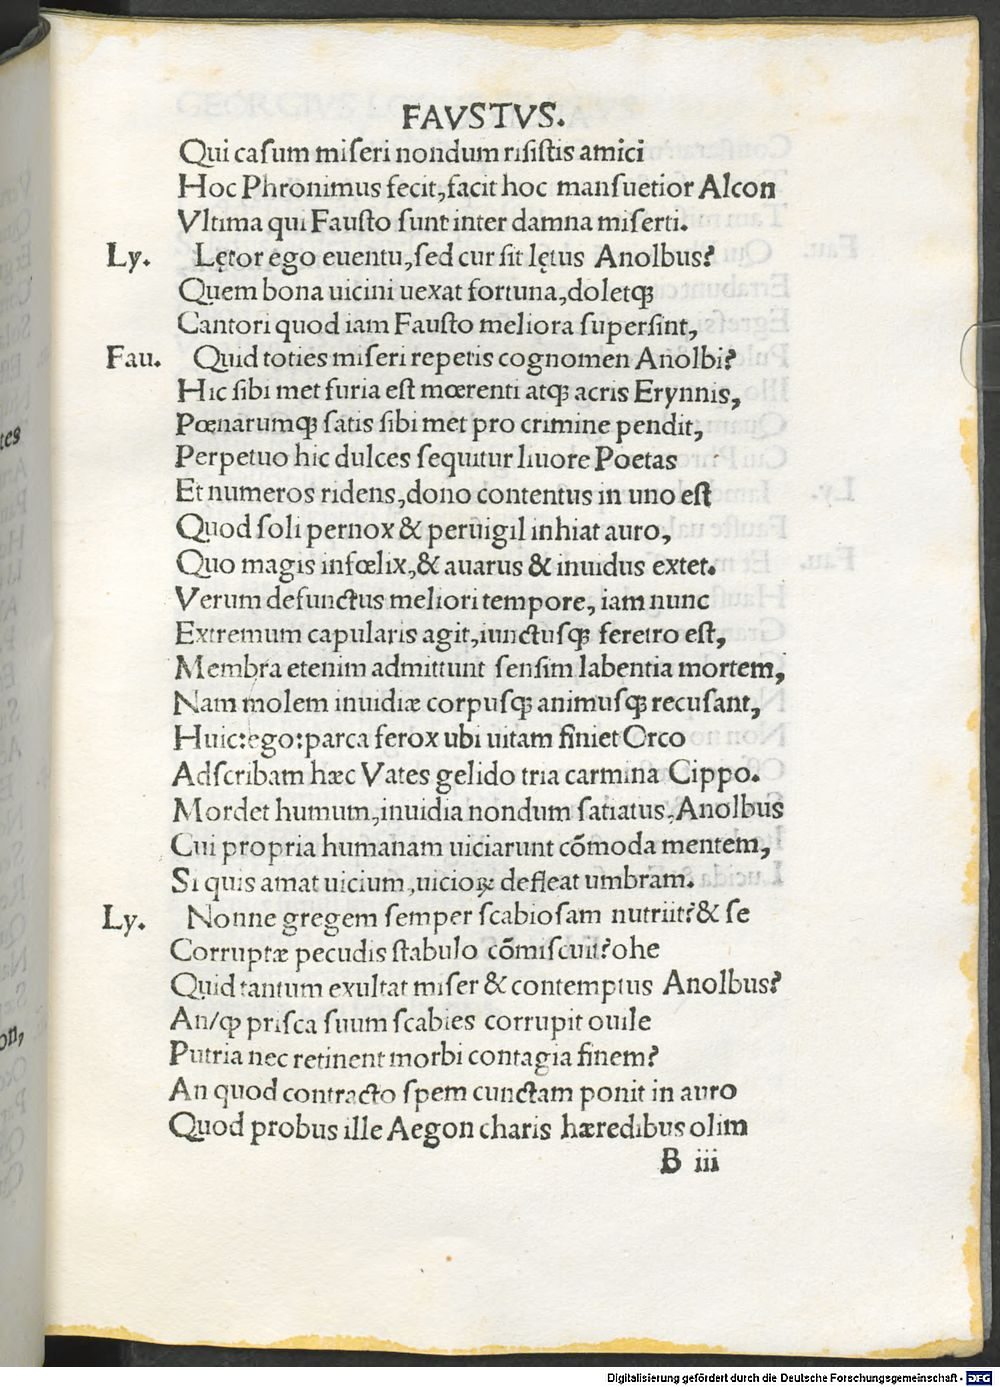 FAVSTVS.
Qui caſum miſeri nondum riſiſtis amici
Hoc Phronimus fecit, facit hoc manſuetior Alcon
Vltima qui Fauſto ſunt inter damna miſerti.
Ly. Lętor ego euentu, ſed cur ſit lętus Anolbus?
Quem bona uicini uexat fortuna, doletqꝫ
Cantori quod iam Fauſto meliora ſuperſint,
Fau. Quid toties miſeri repetis cognomen Anolbi?
Hic ſibi met furia eſt mœrenti atqꝫ acris Erynnis,
Pœnarumqꝫ ſatis ſibi met pro crimine pendit,
Perpetuo hic dulces ſequitur liuore Poetas
Et numeros ridens, dono contentus in uno eſt
Quod ſoli pernox & peruigil inhiat auro,
Quo magis infœlix, & auarus & inuidus extet.
Verum defunctus meliori tempore, iam nunc
Extremum capularis agit, iunctuſqꝫ feretro eſt,
Membra etenim admittunt ſenſim labentia mortem,
Nam molem inuidiæ corpuſqꝫ animuſqꝫ recuſant,
Huic: ego: parca ferox ubi uitam finiet Orco
Adſcribam hæc Vates gelido tria carmina Cippo.
Mordet humum, inuidia nondum ſatiatus, Anolbus
Cui propria humanam uiciarunt cõmoda mentem,
Si quis amat uicium, uicioꝝ defleat umbram.
Ly. Nonne gregem ſemper ſcabioſam nutriit? & ſe
Corruptæ pecudis ſtabulo cõmiſcuit? ohe
Quid tantum exultat miſer & contemptus Anolbus?
An/ꝙ priſca ſuum ſcabies corrupit ouile
Putria nec retinent morbi contagia finem?
An quod contracto ſpem cunctam ponit in auro
Quod probus ille Aegon charis hæredibus olim
B iii
tes
on,
Digitalisierung gefördert durch die Deutsche Forschungsgemeinschaft - DFG